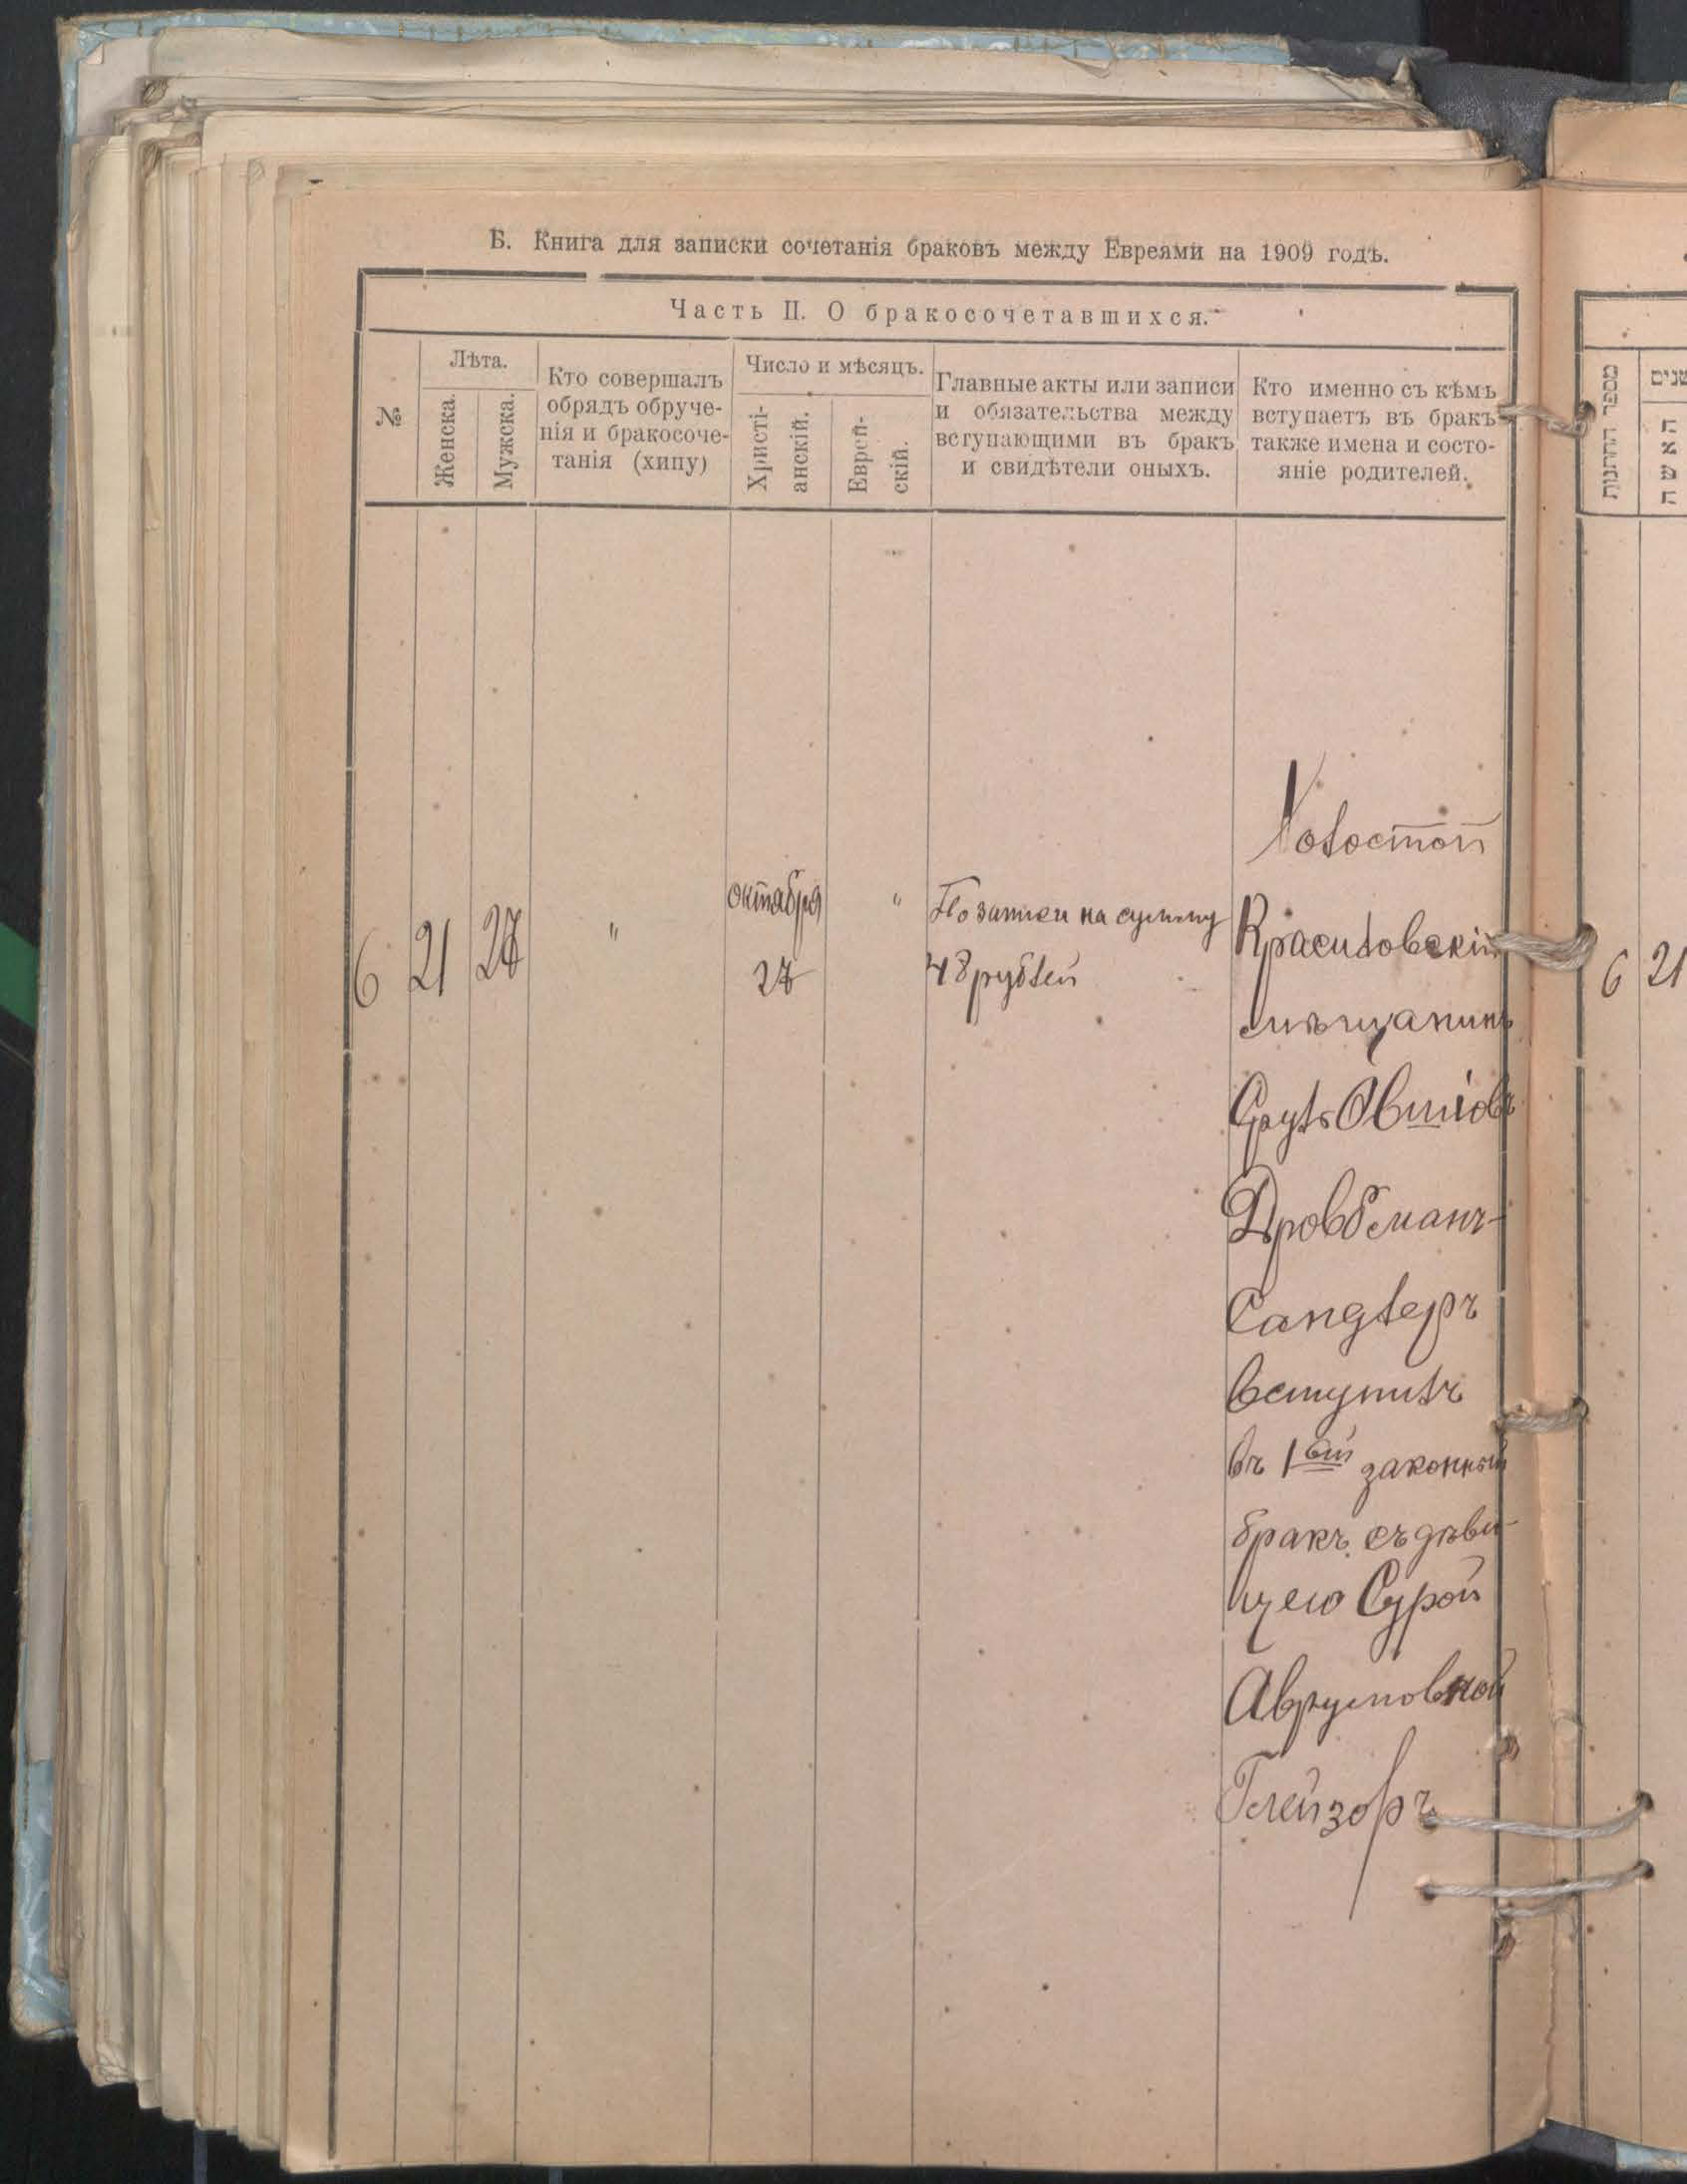 Б. Книга для записки сочетанія браковъ между Евреями на 1909 годъ.
Часть II. О бракосочетавшихся.
№
Лѣта.
Женска.
Мужска.
Кто совершалъ
обрядъ обруче-
нія и бракосоче-
танія (хипу)
Число и мѣсяцъ.
Христі-
анскій.
Еврей-
скій.
Главные акты или записи
и обязательства между
вступающими въ бракъ
и свидѣтели оныхъ.
Кто именно съ кѣмъ
вступаетъ въ бракъ
также имена и состо-
яніе родителей.
6
21
27
"
октября
27
"
По записи на сумму
48 рублей
Холостой
Красиловскій
мѣщанинъ
Сруль Овшіовъ
Дровбманъ-
Сандлеръ
вступилъ
въ 1ый законный
бракъ съ дѣви-
цею Сурой
Аврумовной
Глейзоръ
מספר החתונות
שנים
האשה
6
21